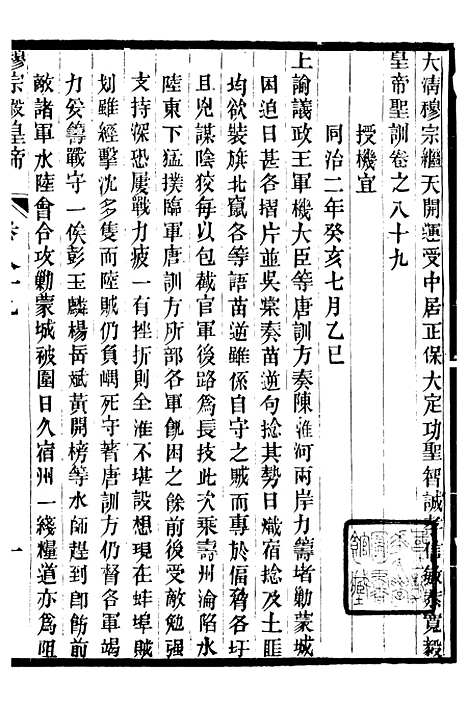 大清穆宗繼天開運受中居正保大定功聖智誠孝信敏恭寬毅
皇帝聖訓卷之八十九
授機宜
同治二年癸亥七月乙巳
上諭議政王軍機大臣等唐訓方奏陳淮河兩岸力籌堵勦蒙城
因迫日甚各摺片並吳棠奏苗逆句捻其勢日熾宿捻及各圩
均欲裝旗北竄各等語苗逆雖係自守之賊而於偪脅各圩
且兇謀陰狡每以包截官軍後路為長技此次乘壽州淪陷水
陸東下猛撲臨軍唐訓方所部各軍飢困之餘前後受敵勉強
支持深恐屢戰力疲一有挫折則全淮不堪設想現在蚌埠賊
划雖經擊沈多隻而陸賊仍負嵎死守著唐訓方仍督各軍竭
力妥籌戰守一俟彭玉麟楊岳斌黃開榜等水師趕到卽飭前
敵諸軍水陸會合攻勦蒙城被圍日久宿州一綫糧道亦為阻
穆宗毅皇帝 卷八十九 一